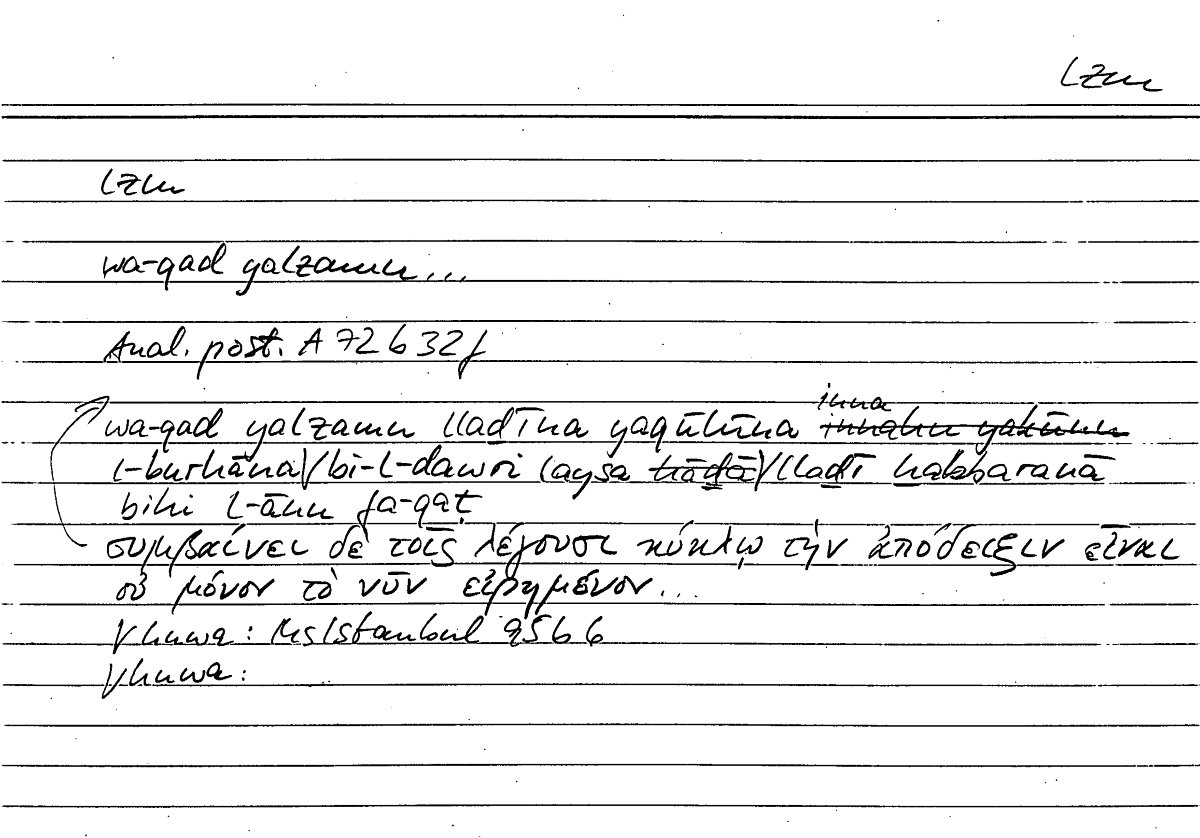 lzm
lzm
wa-qad yalzamu...
Anal. post. A 72 b 32f
wa-qad yalzamu lladīna yaqūlūna inna innahu yakūnu
l-burhāna)/bi-l-dawri laysa hāḏā)/lladī ḫabbaranā
bihi l-ānu fa-qaṭ
συμβαίνει δὲ τοῖς λέγουσι κύκλῳ τὴν ἀπόδειξιν εἶναι
οὐ μόνον τὸ νῦν εἰρημένον...
huwa: Ms Istanbul 95b6
huwa: